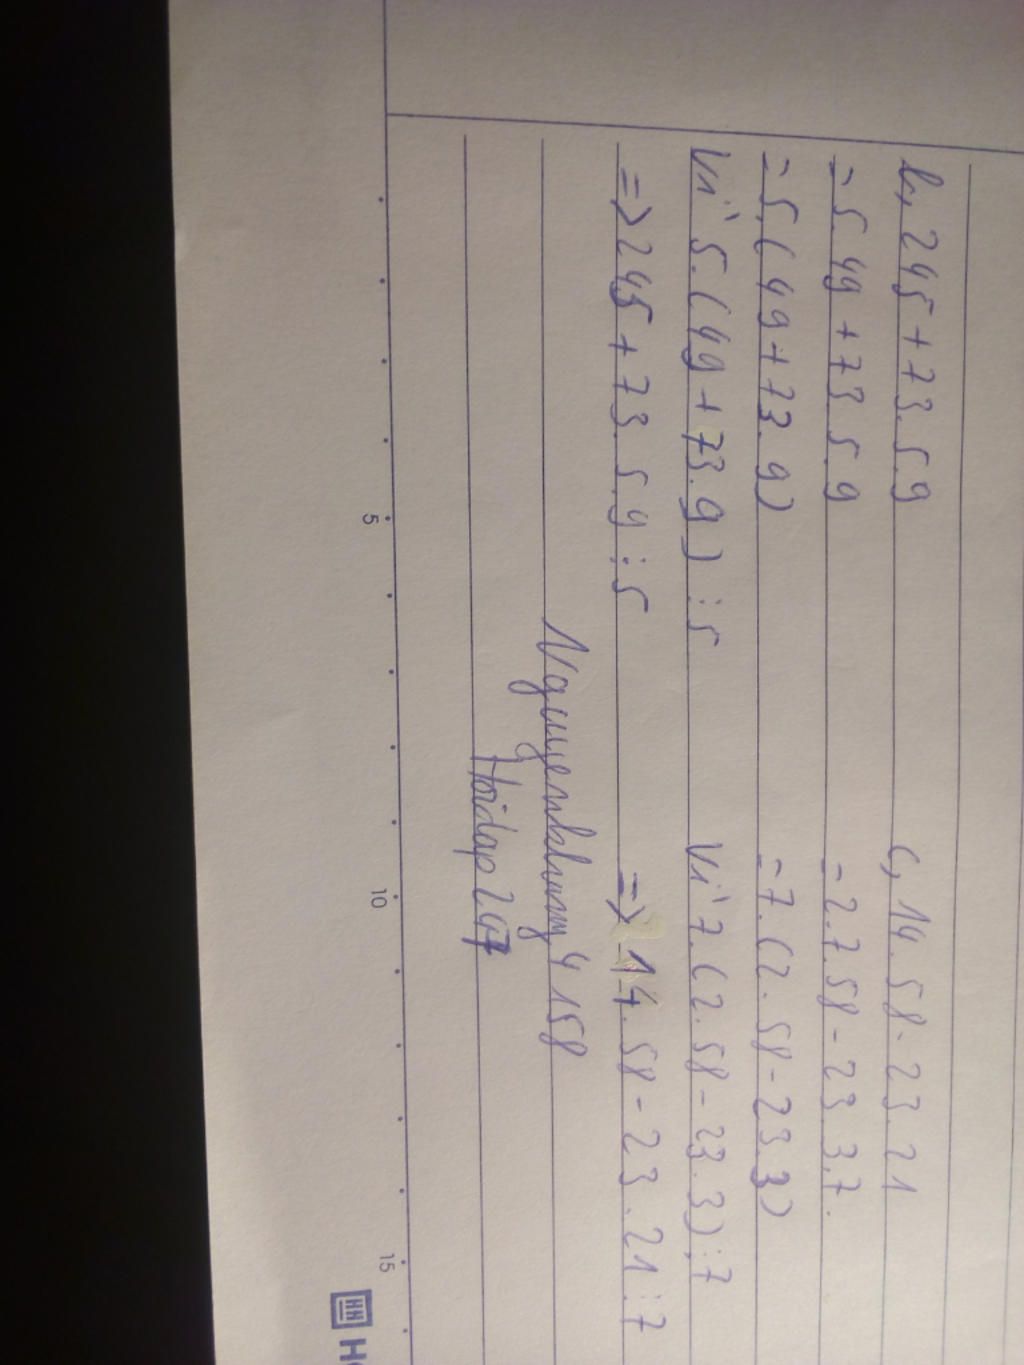 b, 245 + 73.5.9
= 5.49 + 73.5.9
= 5.(49 + 73.9)
Vì 5.(49 + 73.9) ⋮ 5
=> 245 + 73.5.9 ⋮ 5
c, 14.58 - 23.21
= 2.7.58 - 23.3.7.
= 7.(2.58 - 23.3)
Vì 7.(2.58 - 23.3) ⋮ 7
=> 14.58 - 23.21 ⋮ 7
Hoidap247
5
10
15